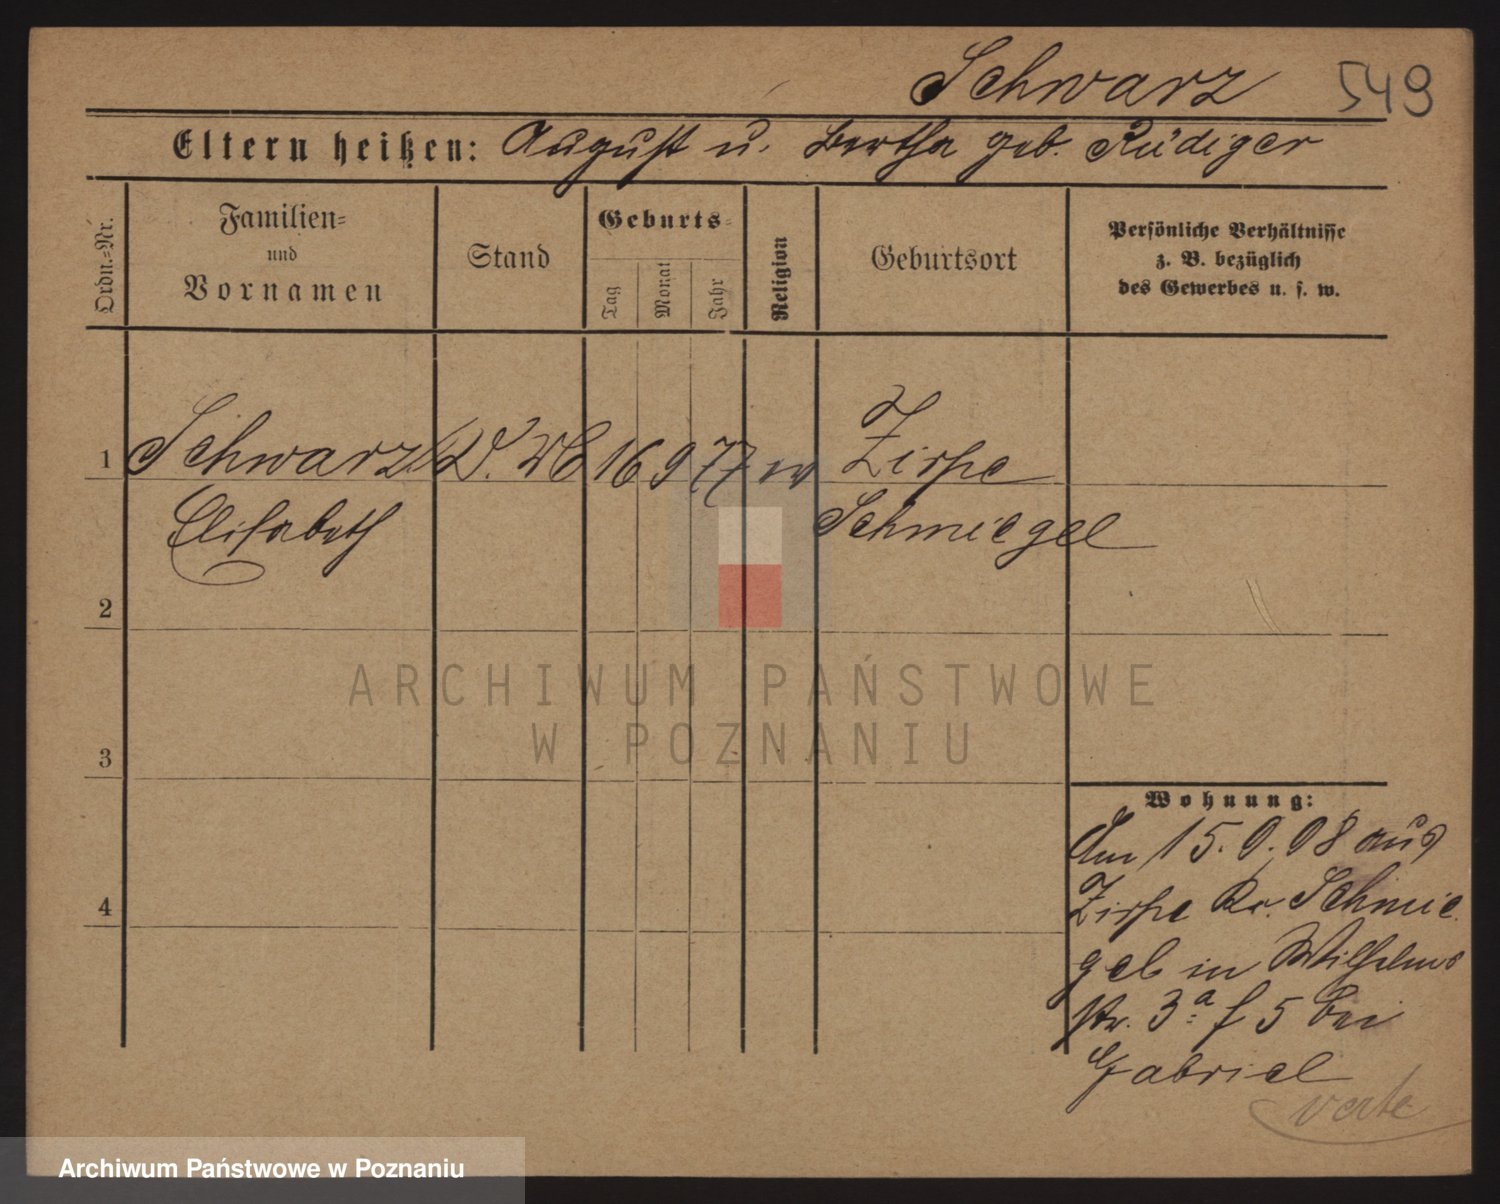 Schwarz 549
Eltern heißen: August u. Bertha geb. Rüdiger
Ordn.-Nr.
Familien-
und
Vornamen
Stand
Geburts-
Tag
Monat
Jahr
Religion
Geburtsort
Persönliche Verhältnisse
z. B. bezüglich
des Gewerbes u. s. w.
1 Schwarz 16 9 77 Zirpe
Elisabeth Schmiegel
2
3
4
Wohnung:
Am 15. 9. 08 aus
Zirpe Kr. Schmie
gel in Wilhelms
str. 3a f 5 bei
Gabriel
verte
ARCHIWUM PAŃSTWOWE
W POZNANIU
Archiwum Państwowe w Poznaniu